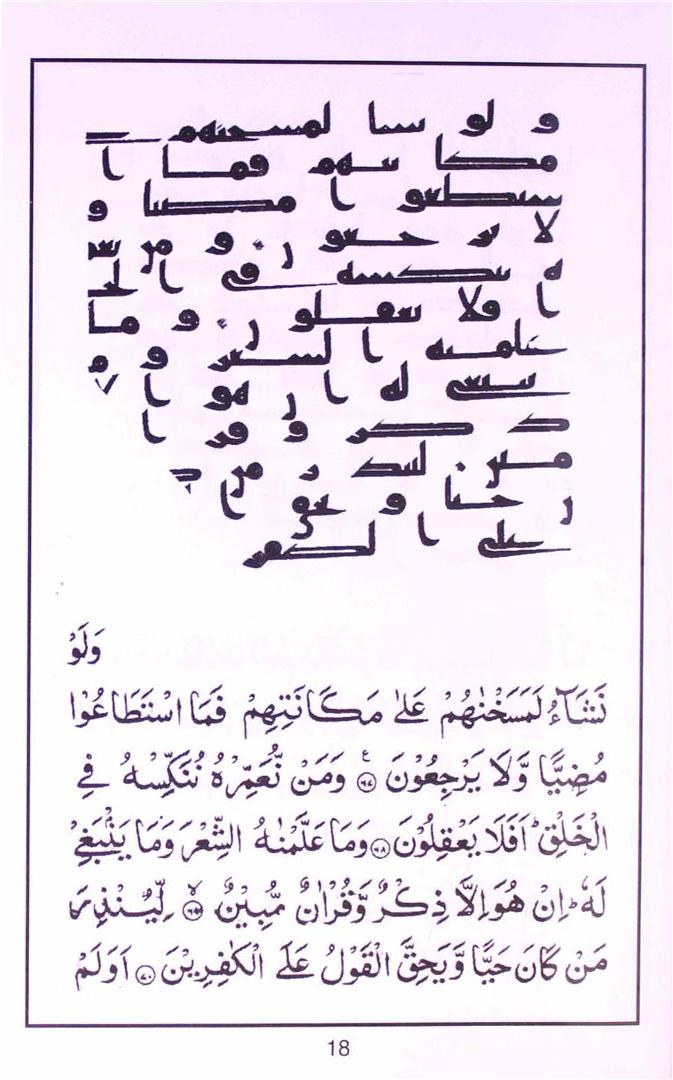 و لو سا لمسحىهم
مكا ىىهم فما ا
سىطعو ا مصىا و
لا ىر حعو ں و مں ىعمر
ه ىىكسه فى ا لحلو
ا فلا ىعڡلو ں و ما
علمىه ا لسعر و ما
ىىىعى له ا ں هو ا لا
د كر و ڡر ا
مىىں لىىد ر مں كا
ں حىا و ىحو ا
على ا لكڡر
وَلَوْ
نَشَآءُ لَمَسَخْنٰهُمْ عَلٰى مَكَانَتِهِمْ فَمَا اسْتَطَاعُوْا
مُضِيًّا وَّلَا يَرْجِعُوْنَ ﴿٦٧﴾ وَمَنْ نُّعَمِّرْهُ نُنَكِّسْهُ فِي
الْخَلْقِ ؕ اَفَلَا يَعْقِلُوْنَ ﴿٦٨﴾ وَمَا عَلَّمْنٰهُ الشِّعْرَ وَمَا يَنْۢبَغِيْ
لَهٗ ؕ اِنْ هُوَ اِلَّا ذِكْرٌ وَّقُرْاٰنٌ مُّبِيْنٌ ﴿٦٩﴾ لِّيُنْذِرَ
مَنْ كَانَ حَيًّا وَّيَحِقَّ الْقَوْلُ عَلَى الْكٰفِرِيْنَ ﴿٧٠﴾ اَوَلَمْ
18